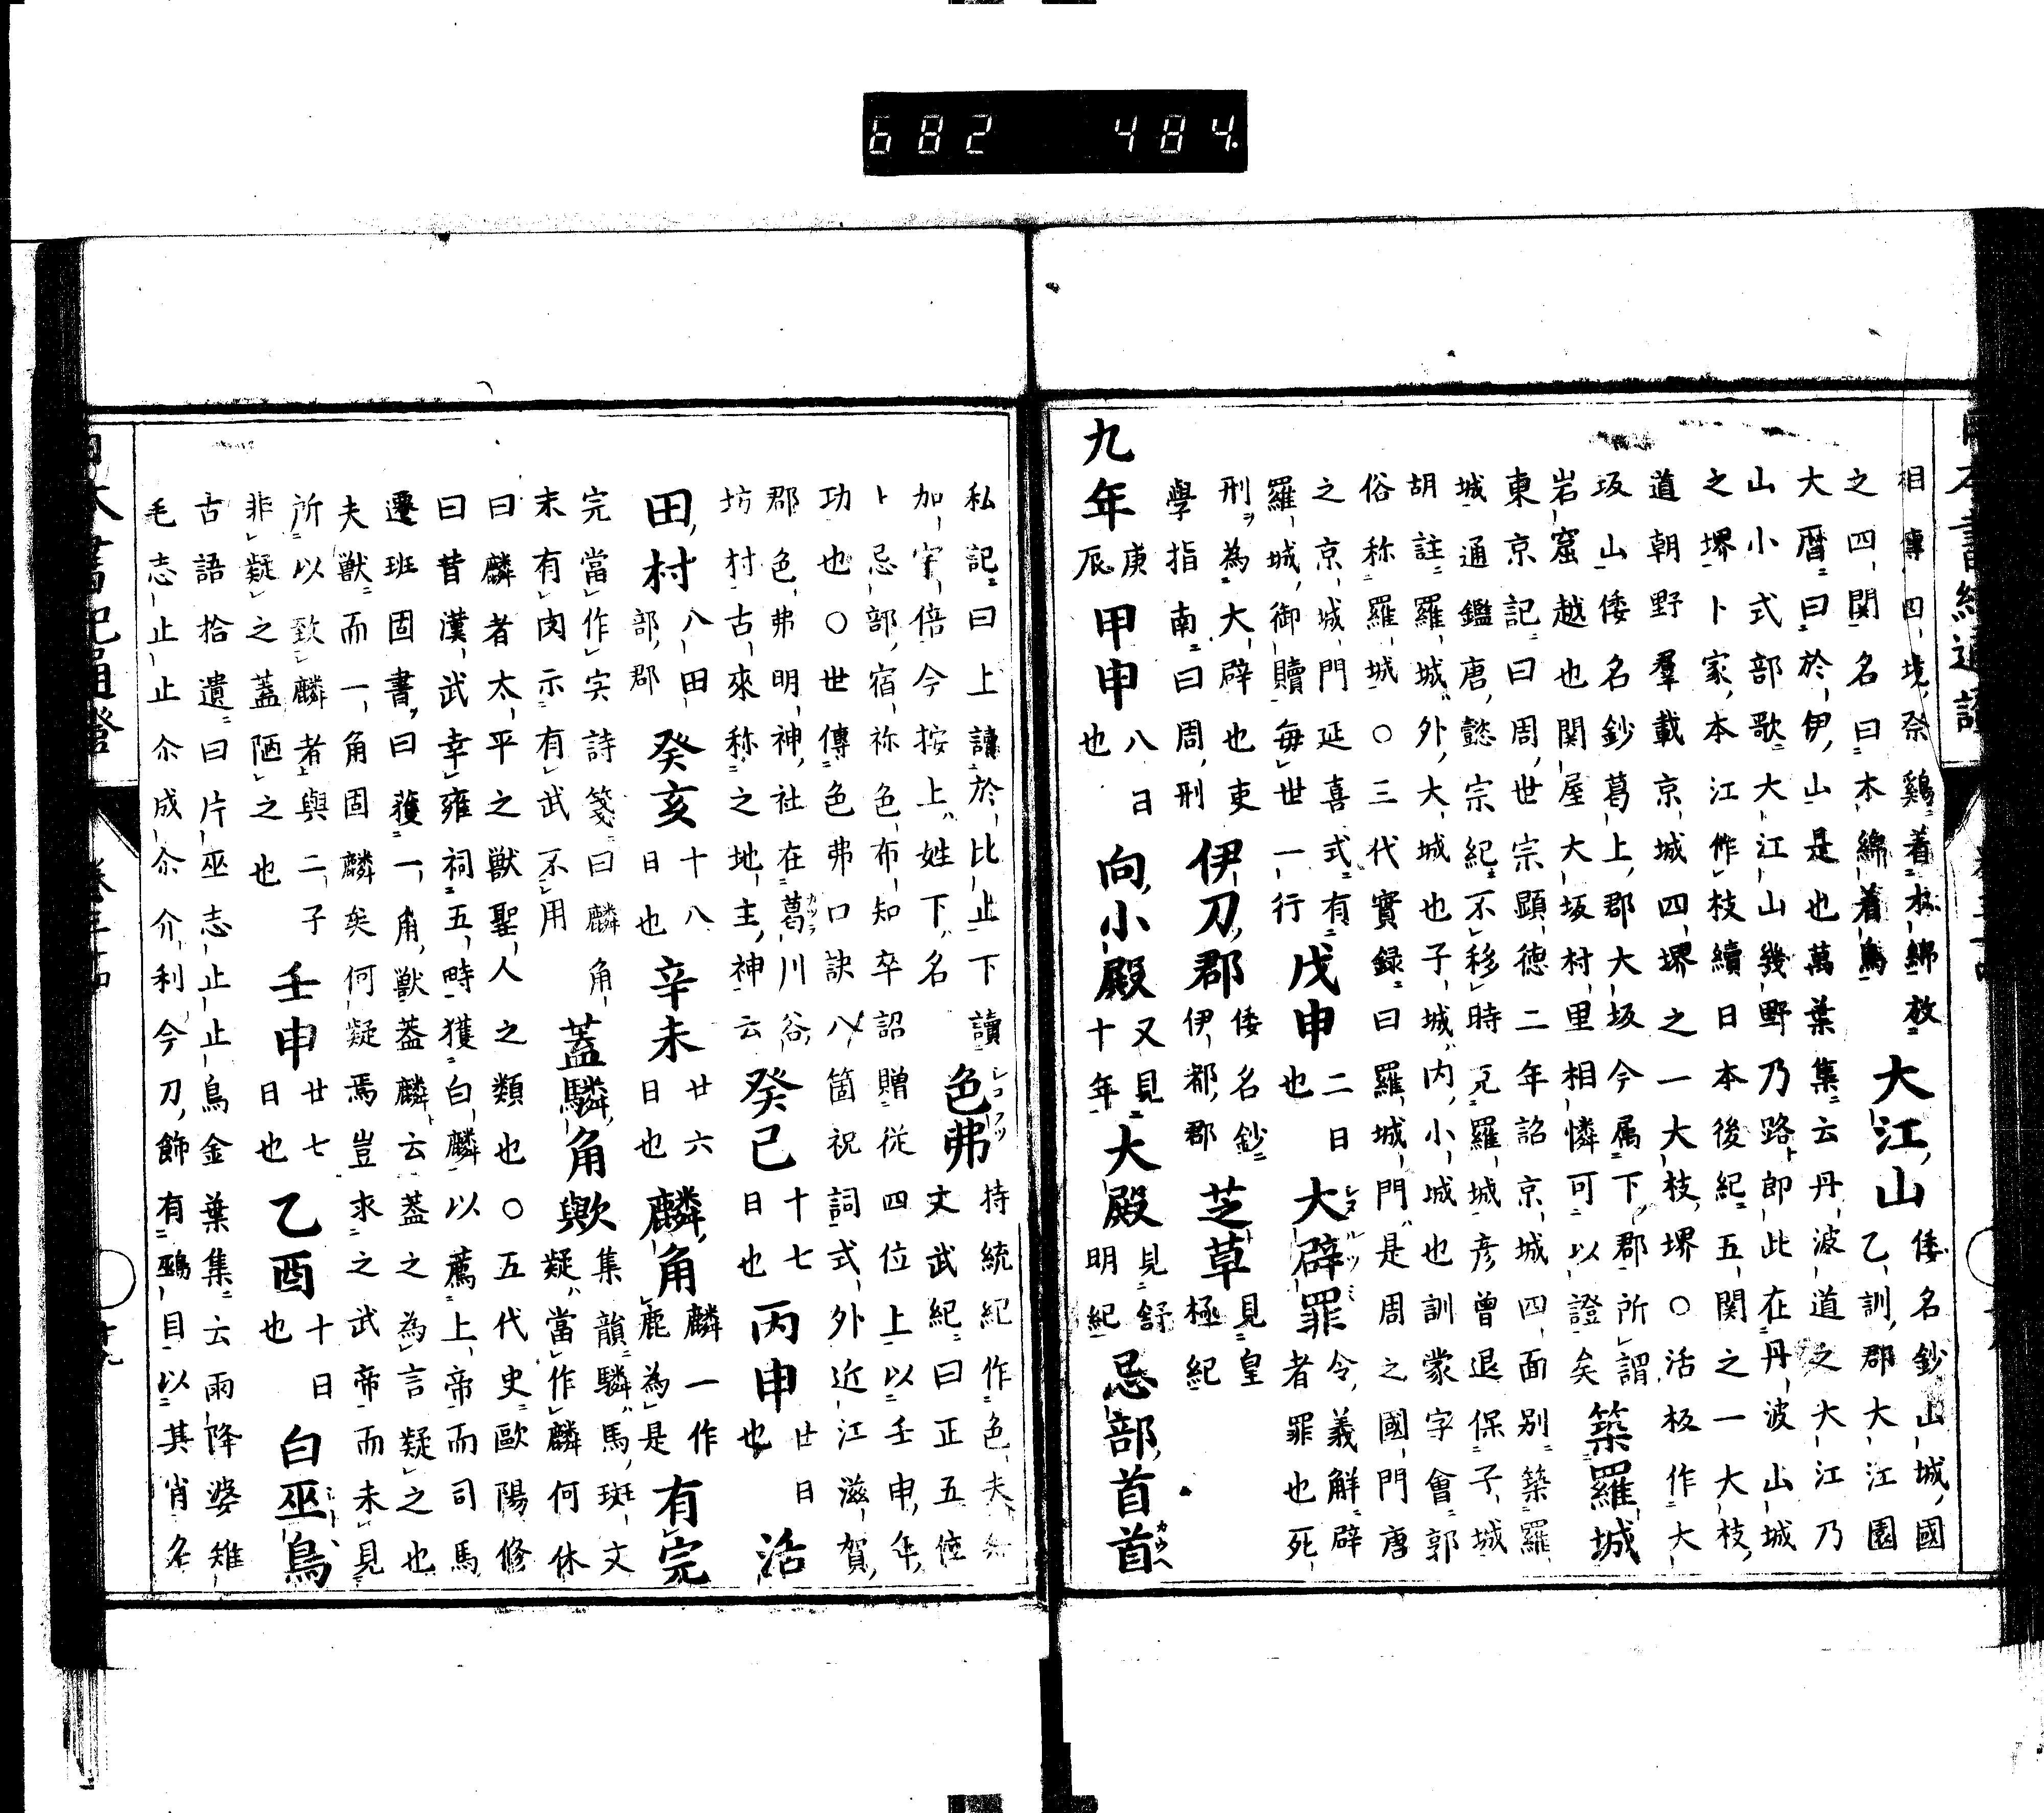 682 484.
相傳四境祭鷄着木綿放 大江山 倭名鈔山城國
之四関名曰木綿着鳥 乙訓郡大江園
大暦曰於伊山是也萬葉集云丹波道之大江乃
山小式部歌大江山幾野乃路郎此在丹波山城
之堺卜家本江作枝續日本後紀五関之一大枝
道朝野羣載京城四堺之一大枝堺○活板作大
坂山倭名鈔葛上郡大坂今属下郡所謂 築羅城
岩窟越也関屋大坂村里相憐可以證矣
東京記曰周世宗顯德二年詔京城四面别築羅
城通鑑唐懿宗紀不移時克羅城彦曾退保子城
胡註羅城外大城也子城内小城也訓蒙字會郭
俗称羅城○三代實録曰羅城門是周之國門唐
之京城門延喜式有 戊申 二日 大辟罪 令義解辟
羅城御贖毎世一行 也 者罪也死
刑為大辟也吏 伊刀郡 倭名鈔 芝草 見皇
學指南曰周刑 伊都郡 極紀
九年 庚辰 甲申 八日也 向小殿 又見十年 大殿 見舒明紀 忌部首首
私記曰上讀於比止下讀 色弗 持統紀作色夫
加宇倍今按上姓下名 文武紀曰正五位
卜忌部宿祢色布知卒詔贈従四位上以壬申年
功也○世傳色弗口訣八箇祝詞式外近江滋賀
郡色弗明神社在葛川谷 癸巳 十七 丙申 廿日 活
坊村古來称之地主神云 日也 也
田村 八田部郡 癸亥 十八日也 辛未 廿六日也 麟角 麟一作鹿為是 有完
完當作宍詩箋曰麟角 蓋驎角歟 集韻驎馬斑文
末有肉示有武不用 疑當作麟何休
曰麟者太平之獣聖人之類也○五代史歐陽修
曰昔漢武幸雍祠五畤獲白麟以薦上帝而司馬
遷班固書曰獲一角獣葢麟云葢之為言疑之也
夫獣而一角固麟矣何疑焉豈求之武帝而未見
所以致麟者與二子 壬申 廿七 乙酉 十日 白巫鳥
非疑之蓋陋之也 日也 也
古語拾遺曰片巫志止止鳥金葉集云雨降婆雉
毛志止止尒成尒介利今刀飾有鵐目以其肖名